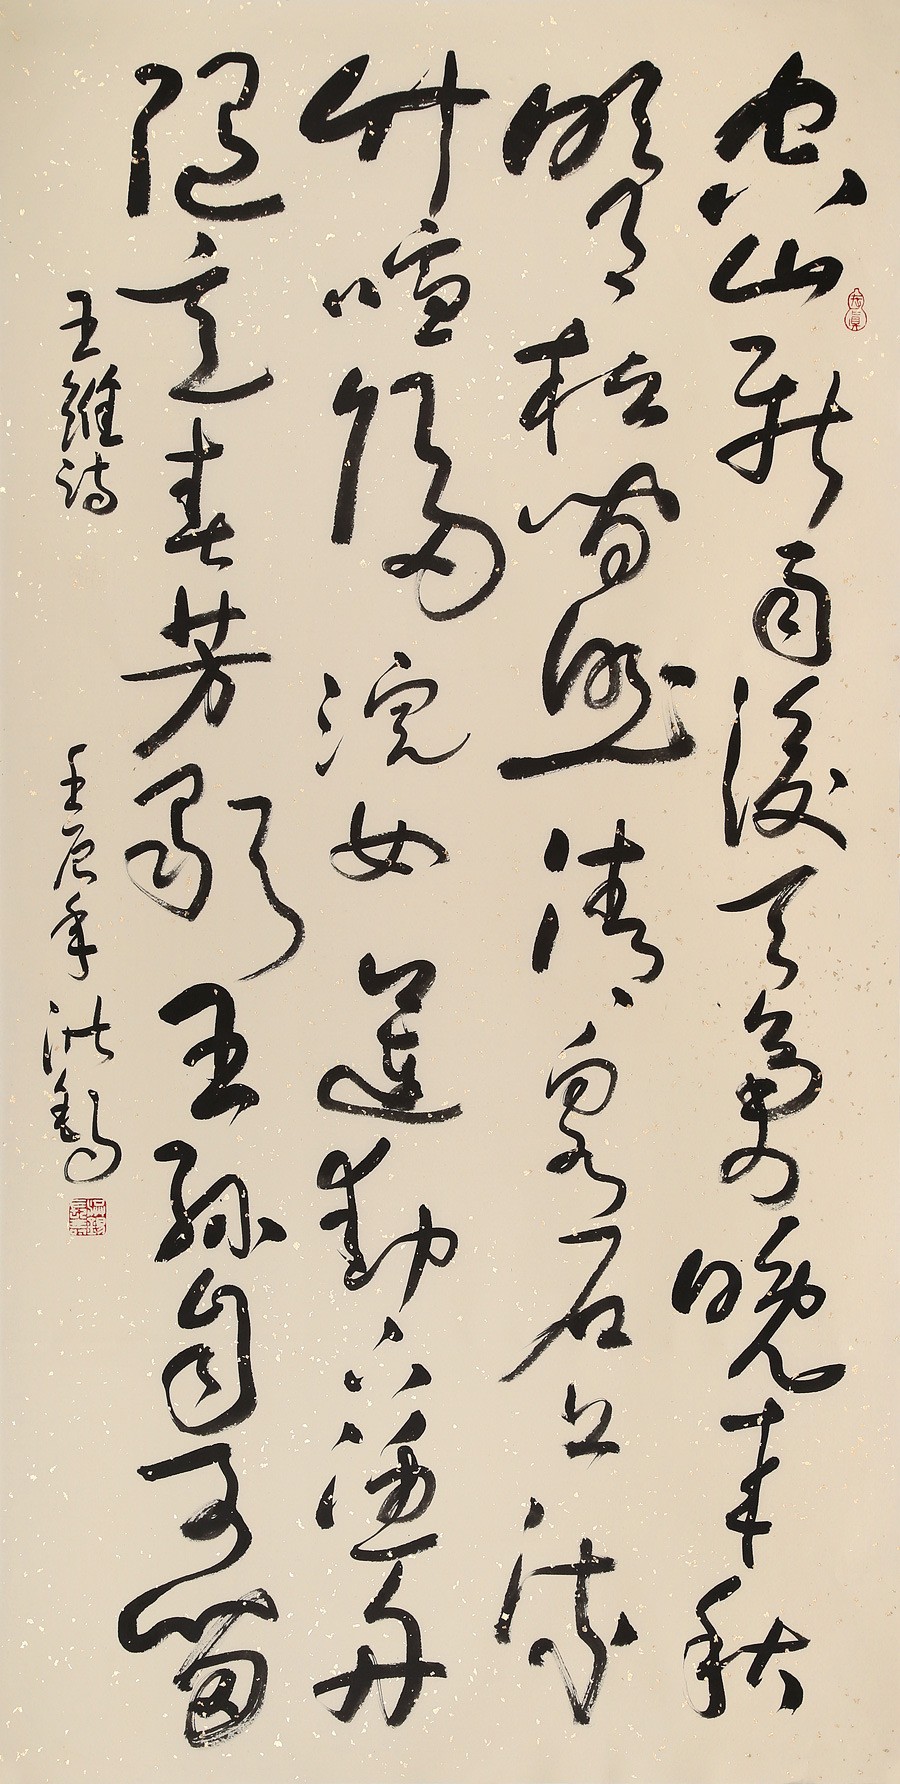 空山新雨後天氣晚来秋
明月松間照清泉石上流
竹喧歸浣女蓮動下漁舟
隨意春芳歇王孫自可留
王維詩 壬辰年